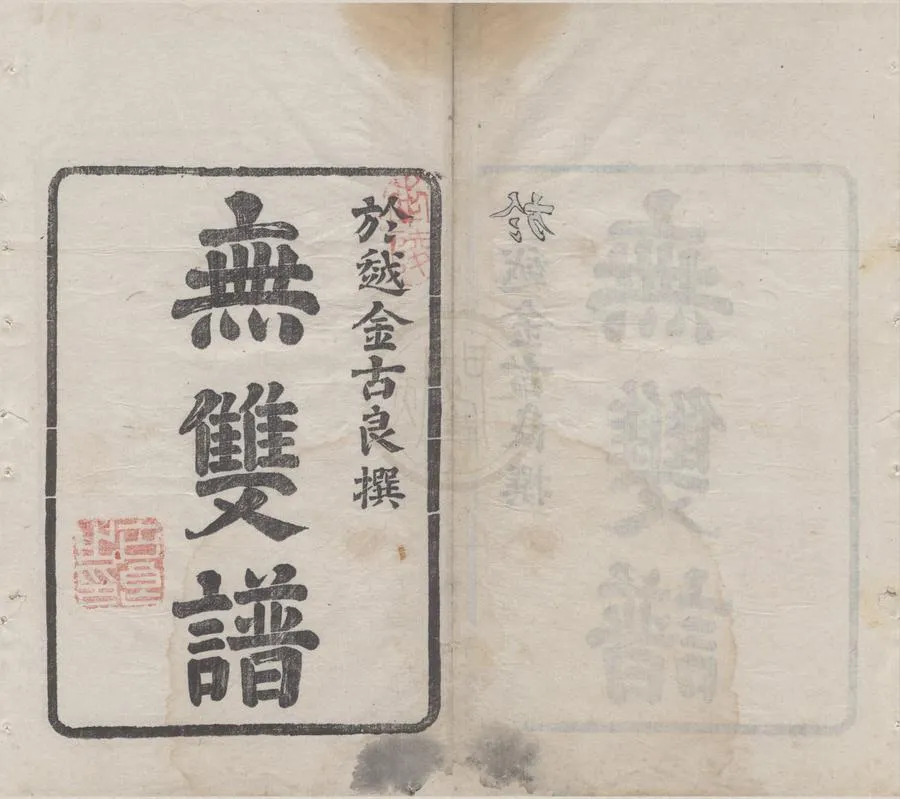 於越金古良撰
無雙譜